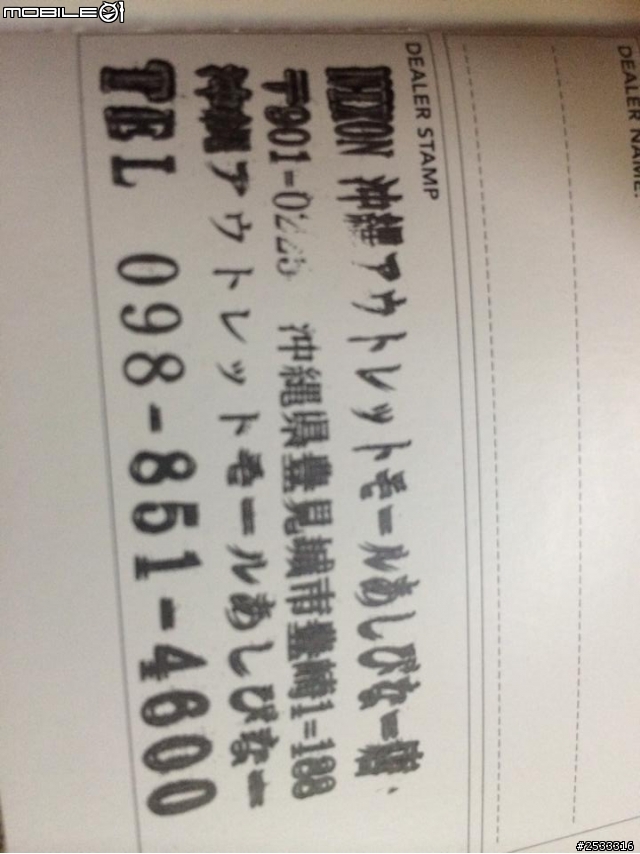 MOBILE01
DEALER NAME:
DEALER STAMP
NIXON 沖縄アウトレットモールあしびなー店
〒901-0225 沖縄県豊見城市豊崎1-188
沖縄アウトレットモールあしびなー
TEL 098-851-4600
#2533316